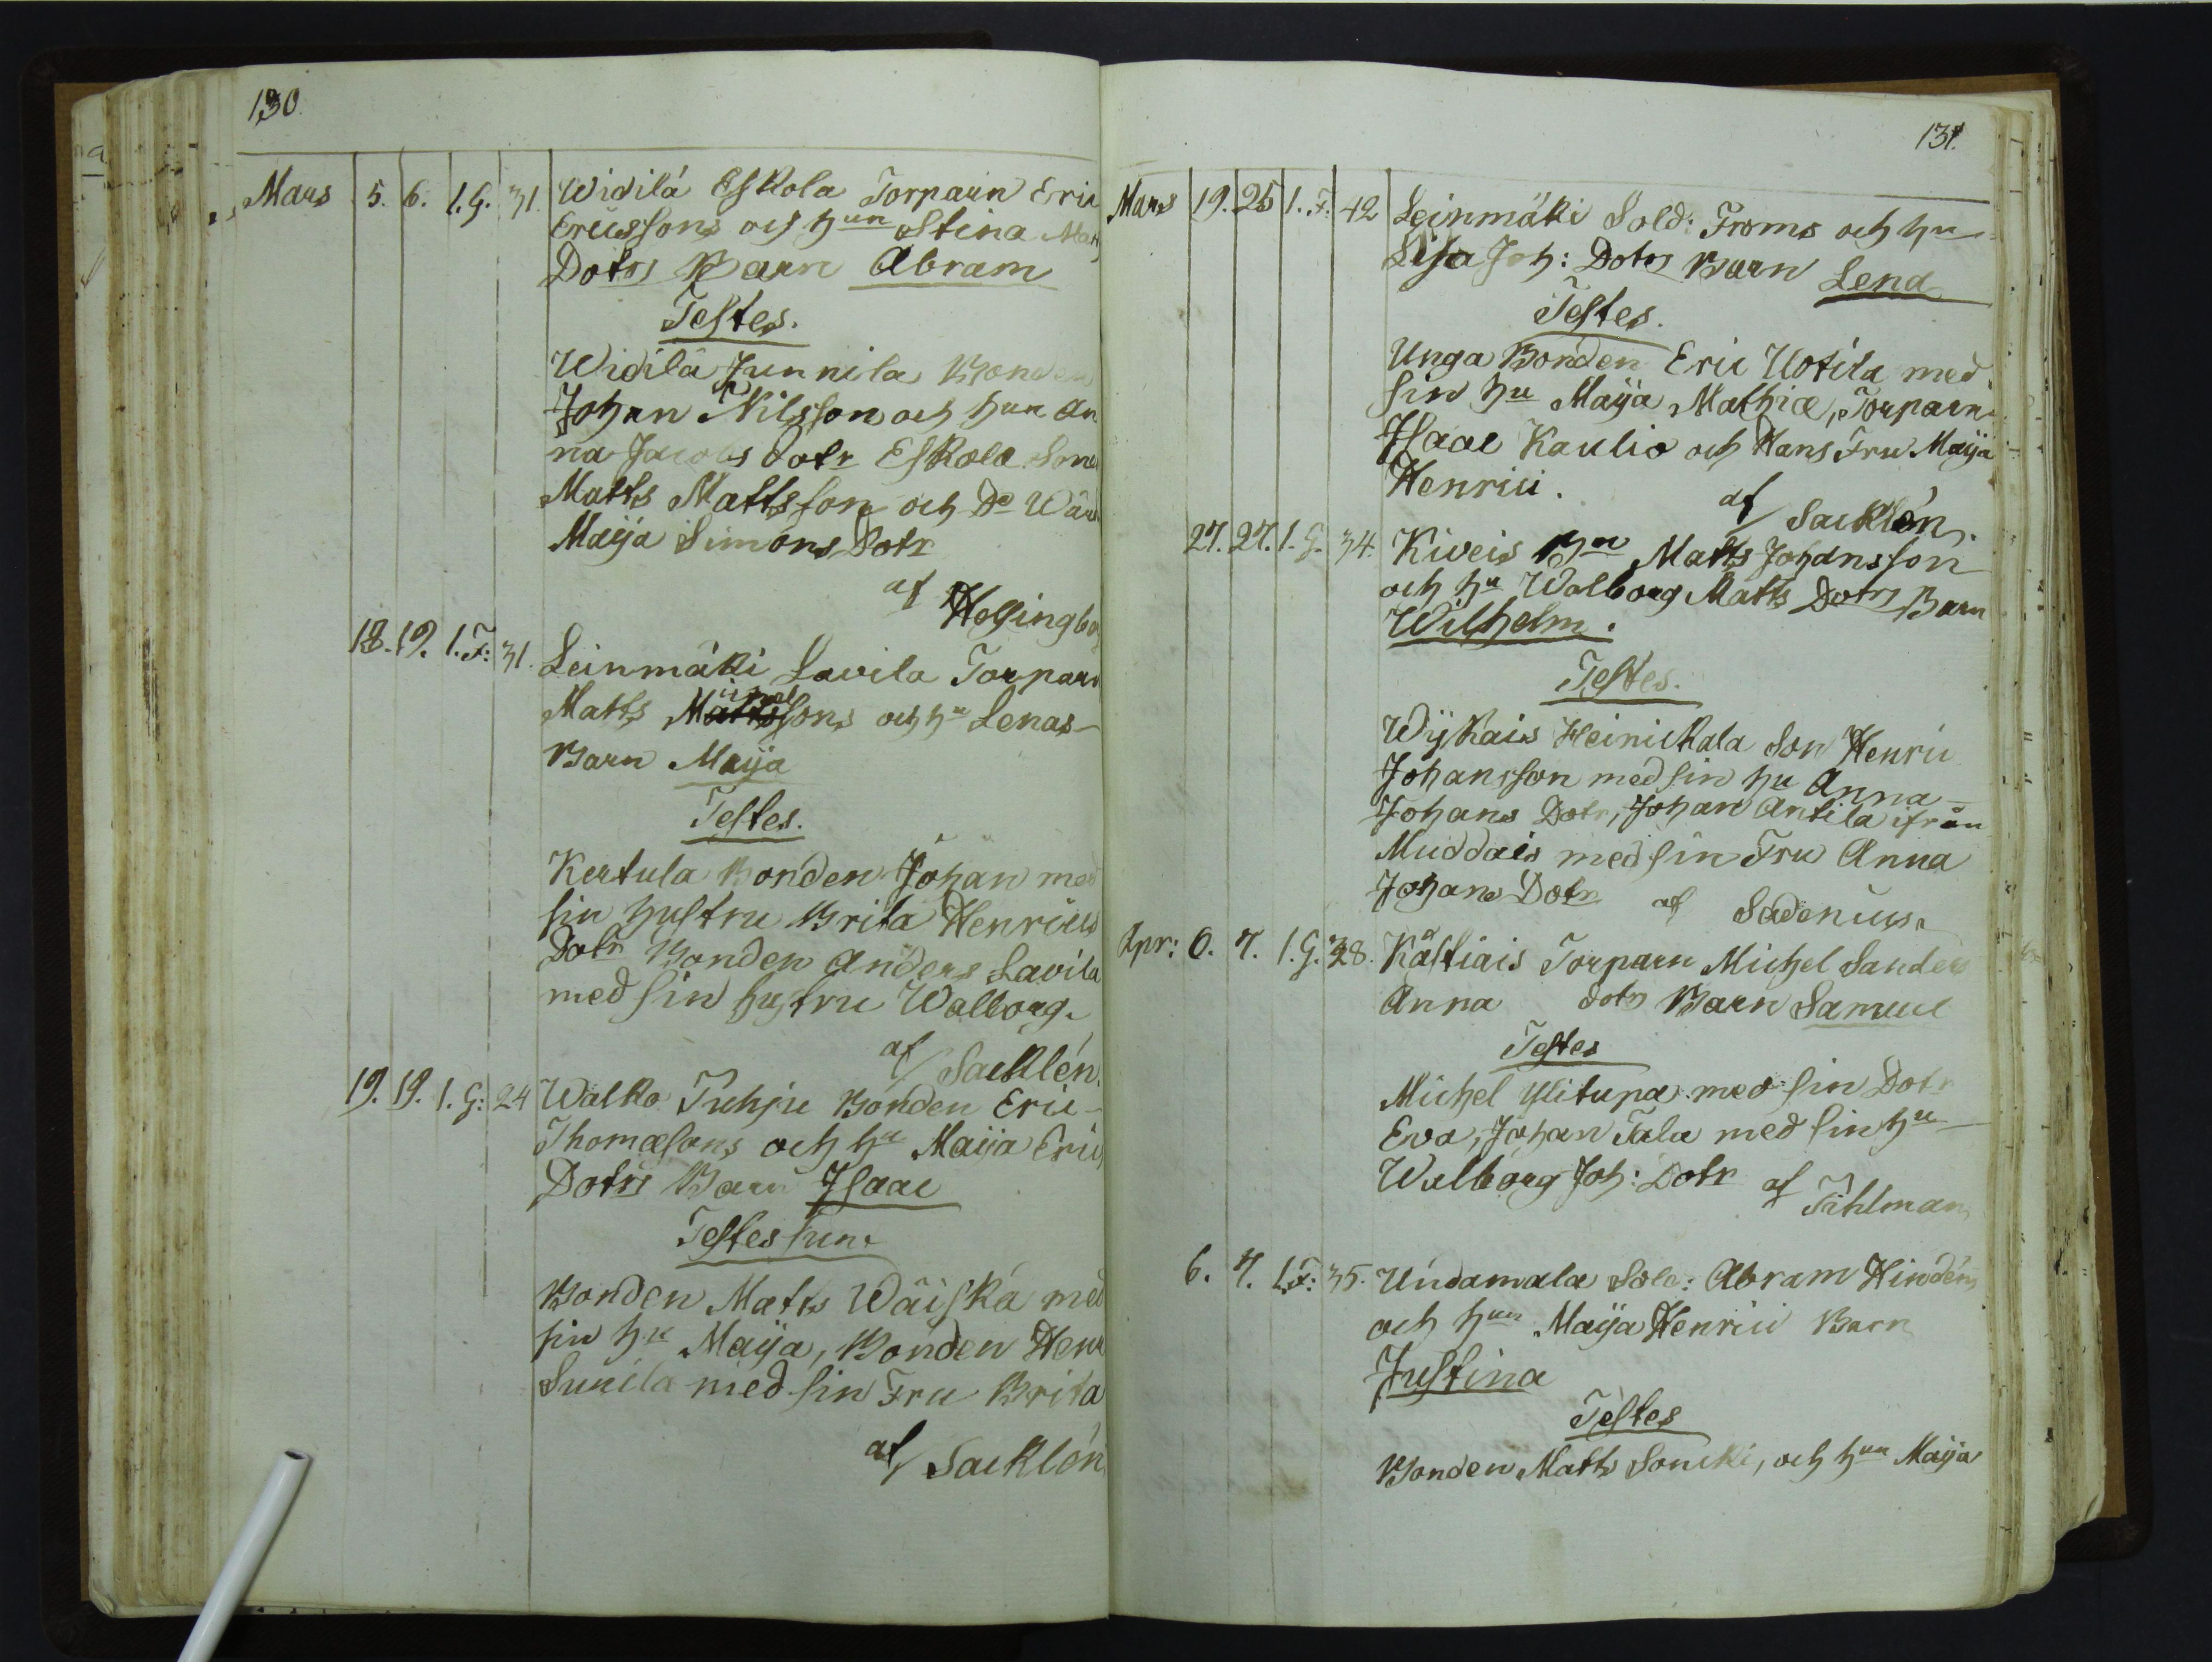 130.
Mars 5. 6. 1.G. 31. Widilä Eskola Torparn Eric
Ericssons och hun Stina Mat
Dotrs Barn Abram
Testes.
Widilä Junnila Bonden
Johan Nilsson och hun An
na Jacobs dotr Eskola Sone
Matts Mattsson och De
Maija Simons Dotr
af Helsingber
18. 19. 1.F: 31. Leinmäki Lavila Torparn
Matts Mattssons och hu Lenas
Barn Maija
Testes.
Kertula Bonden Johan med
sin hustru Brita Henrics
Dotr Bonden Anders Lavila
med sin hustru Walborg.
af Sacklén.
19. 19. 1.G: 24 Walko Tuhju Bonden Eric
Thomæsons och hu Maija Erics
Dotrs Barn Isaac
Testes sunt
Bonden Matts Wäiskä med
sin hu Maija, Bonden Henr
Sunila med sin Fru Brita
af Sacklén
131.
Mars 19. 25 1.F: 42 Leinmäki Sold: Froms och hu
Lisa Joh: Dotrs Barn Lena
Testes.
Unga Bonden Eric Uotila med
sin hu Maija Mathiæ, Torparn
Isaac Kaulio och Hans Fru Maija
Henrici.
af Sacklén.
27. 27. 1.G. 34. Kiveis Bn Matts Johansson
och hu Walborg Matts Dotrs Barn
Wilhelm.
Testes.
Wijkais Heinickala Son Henric
Johansson med sin hu Anna
Johans Dotr, Johan Antila ifrån
Muddais med sin Fru Anna
Johans Dotr af Sadenius.
Apr: 6. 7. 1.G. 28. Kåstiais Torparn Michel Sanders
Anna dotrs Barn Samuel
Testes
Michel Ylitupa med sin Dotr
Eva, Johan Tala med sin hu
Walborg Joh: Dotr af Tihlman
6. 7. 1.F: 35. Undamala Sold: Abram Hindéns
och hun Maija Henrici Barn
Justina
Testes
Bonden Matts Soncki, och hun Maija